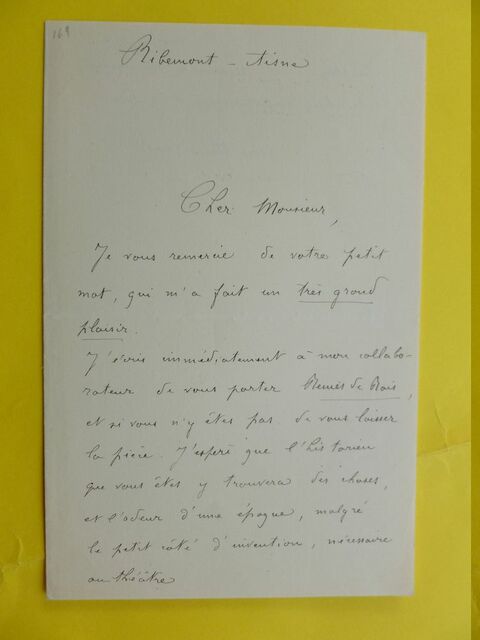 169
Ribemont - Aisne
Cher Monsieur,
Je vous remercie de votre petit
mot, qui m'a fait un très grand
plaisir.
J'écris immédiatement à mon collabo-
rateur de vous porter de Rais,
et si vous n'y êtes pas de vous laisser
la pièce. J'espère que l'historien
que vous êtes y trouvera des choses,
et l'odeur d'une époque, malgré
le petit côté d'invention, nécessaire
au théâtre